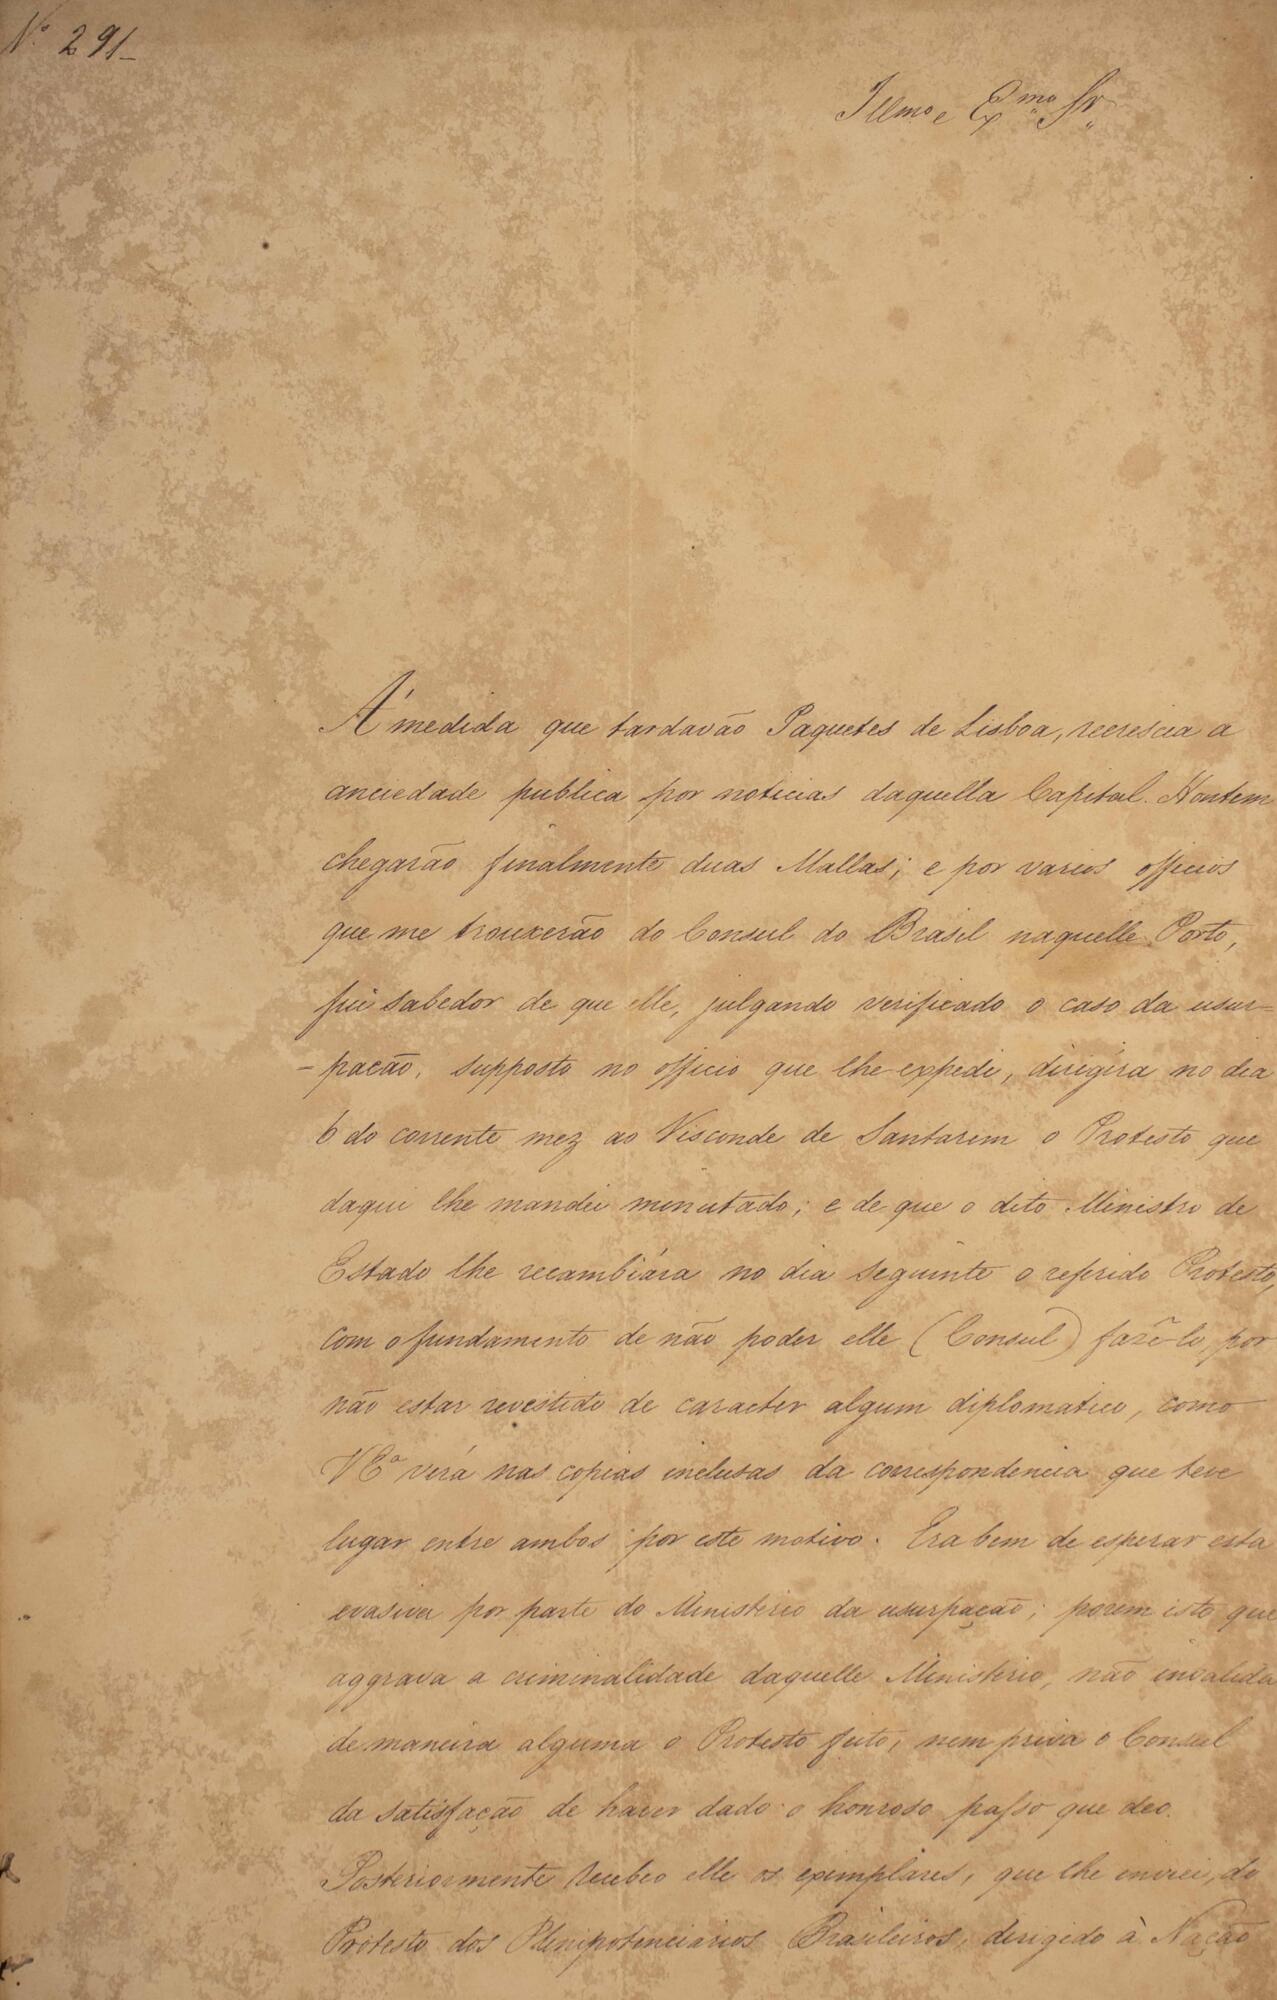 Nº 291_
Illmo e Exmo Sr
Á medida que tardavão Paquetes de Lisboa, recrescia a
anciedade publica por noticias daquella Capital. Hontem
chegarão finalmente duas Mallas; e por varios officios
que me trouxerão do Consul do Brasil naquelle Porto,
fui sabedor de que elle, julgando verificado o caso da usur=
-pacão, supposto no officio que lhe expedi, dirigíra no dia
6 do corrente mez ao Visconde de Santarem o Protesto que
daqui lhe mandei minutado; e de que o dito Ministro de
Estado lhe recambiára no dia seguinte o referido Protesto,
com o fundamento de não poder elle (Consul) fazê-lo, por
não estar revestido de caracter algum diplomatico, como
VEª verá nas copias inclusas da correspondencia que teve
lugar entre ambos por este motivo. Era bem de esperar esta
evasiva por parte do Ministerio da usurpação; porem isto que
aggrava a criminalidade daquelle Ministerio, não invalida
de maneira alguma o Protesto feito, nem priva o Consul
da satisfação de haver dado o honroso passo que deo.
Posteriormente recebeo elle os exemplares, que lhe enviei, do
Protesto dos Plenipotenciarios Brasileiros, dirigido à Nação